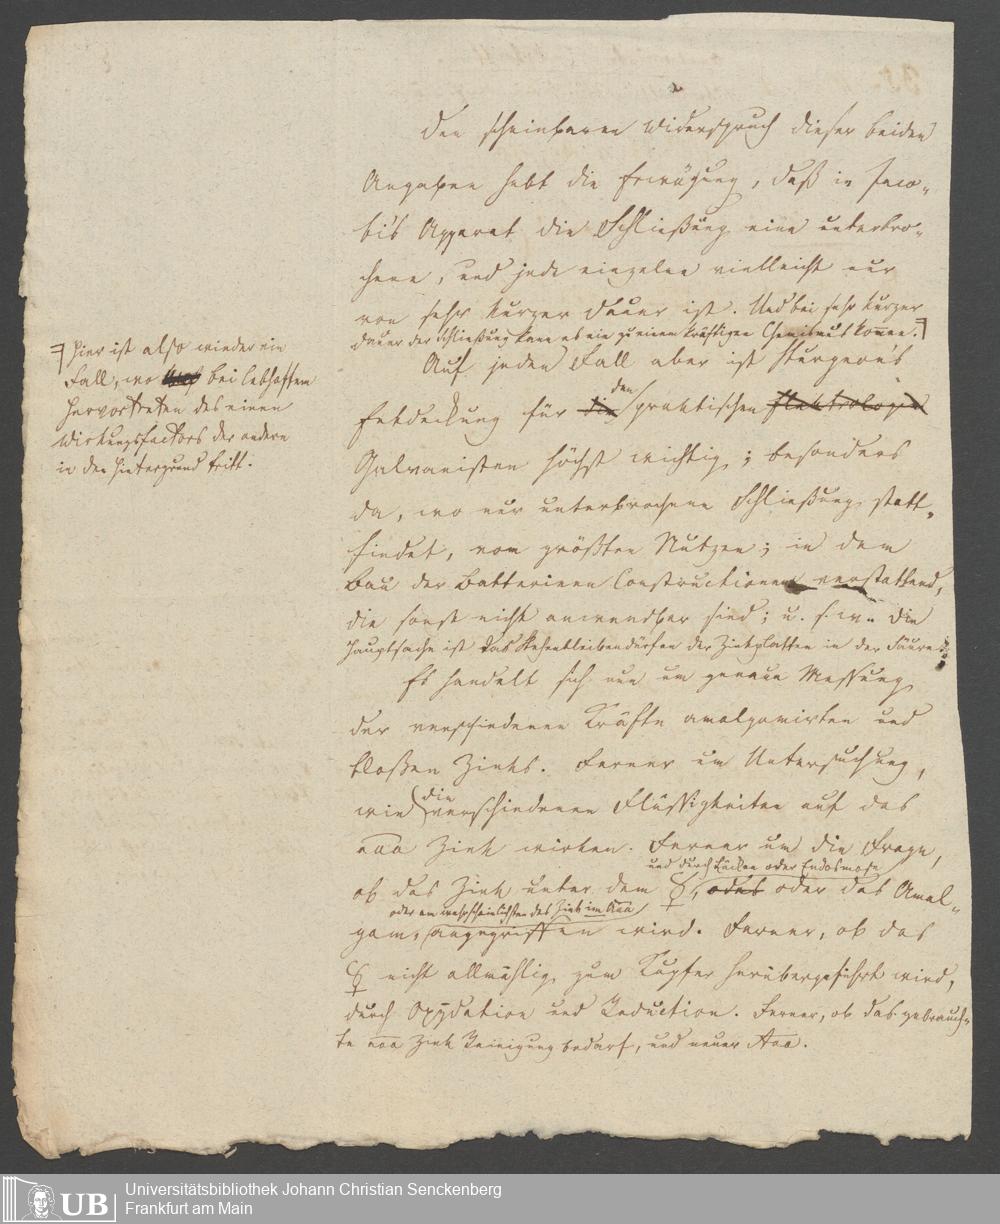 Den scheinbaren Widerspruch dieser beiden
Angaben hebt die Erwägung, daß in Jaco-
bi's Apparat die Schließung eine unterbro-
chene, und jede einzelne vielleicht nur
von sehr kurzer Dauer ist. Und bei sehr kurzer
Dauer der Schließung kann es nie zu einem kräftigen Chemismus kommen.
Hier ist also wieder ein
Fall, wo bei lebhaftem
Hervortreten des einen
Wirkungsfactors der andere
in den Hintergrund tritt.
Auf jeden Fall aber ist Sturgeon's
Entdeckung für die den praktischen Elektrologen
Galvanisten höchst wichtig; besonders
da, wo nur unterbrochene Schließung statt-
findet, vom größten Nutzen; in dem
Bau der Batterieen Constructionen verstattend,
die sonst nicht anwendbar sind; u. s. w. Die
Hauptsache ist das Stehenbleibendürfen der Zinkplatten in der Säure.
Es handelt sich nun um genaue Messung
der verschiedenen Kräfte amalgamirten und
bloßen Zinks. Ferner um Untersuchung,
wie die verschiedenen Flüssigkeiten auf das
aaa Zink wirken. Ferner um die Frage,
und durch Lücken oder Endosmose
ob das Zink unter dem ☿, oder das Amal-
oder am wahrscheinlichsten das Zink im Aaa
gam, angegriffen wird. Ferner, ob das
☿ nicht allmählig zum Kupfer herübergeführt wird,
durch Oxydation und Reduction. Ferner, ob das gebrauch-
te aaa Zink Reinigung bedarf, und neuer Aaa.
Universitätsbibliothek Johann Christian Senckenberg
Frankfurt am Main
UB